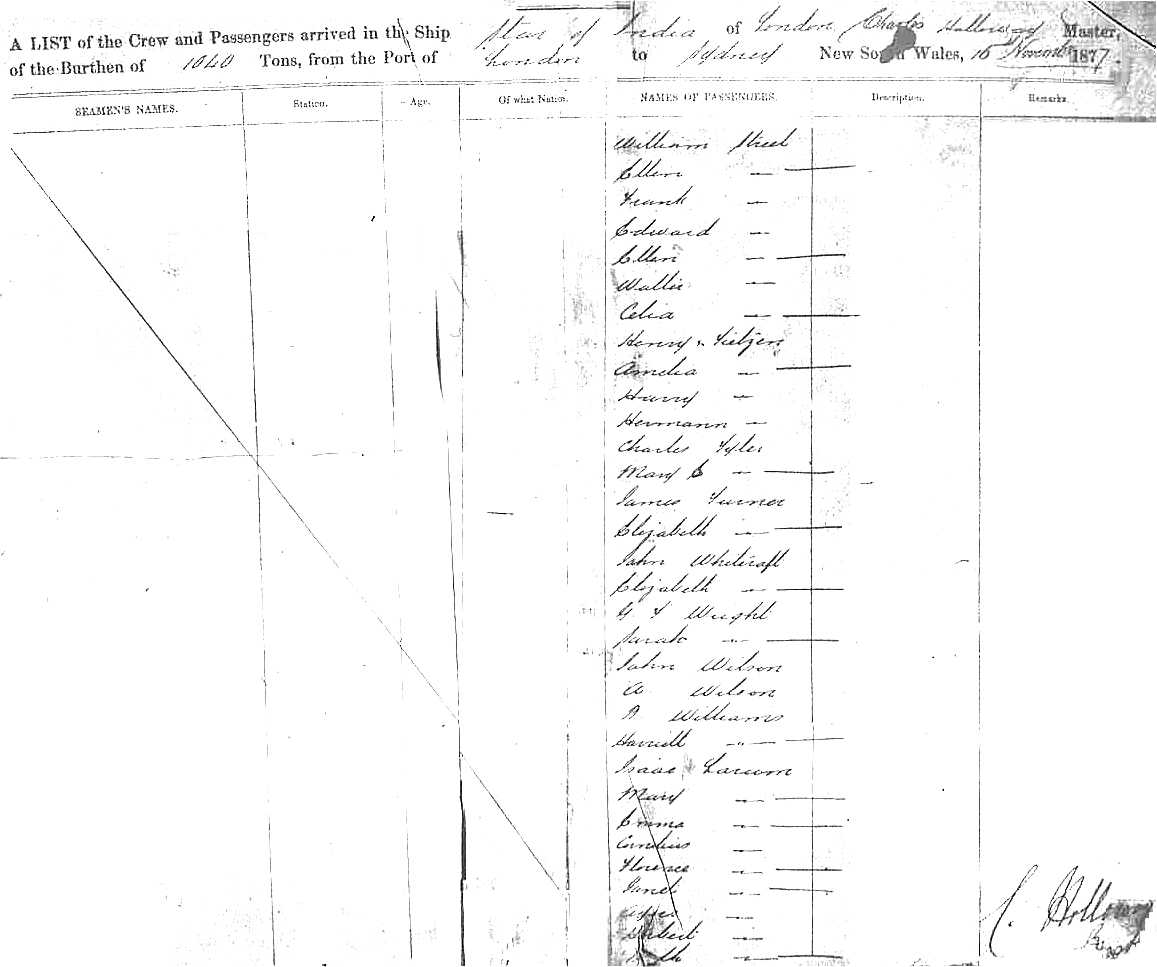 A LIST of the Crew and Passengers arrived in the Ship Star of India of London Charles Holloway Master,
of the Burthen of 1040 Tons, from the Port of London to Sydney New South Wales, 16 Novemb 1877.
SEAMEN'S NAMES. Station. Age. Of what Nation. NAMES OF PASSENGERS. Description. Remarks.
William Street
Ellen —
Frank —
Edward —
Ellen —
Walter —
Celia —
Henry
Amelia —
Harry —
Hermann —
Charles Tyler
Mary E —
James Turner
Elizabeth —
John Whitcraft
Elizabeth —
Wright
Sarah —
John Wilson
A Wilson
Williams
Harriett —
Isaac Larcom
Mary —
Emma —
Cornelius —
Florence —
Janet —
—
Herbert —
—
C. Holloway